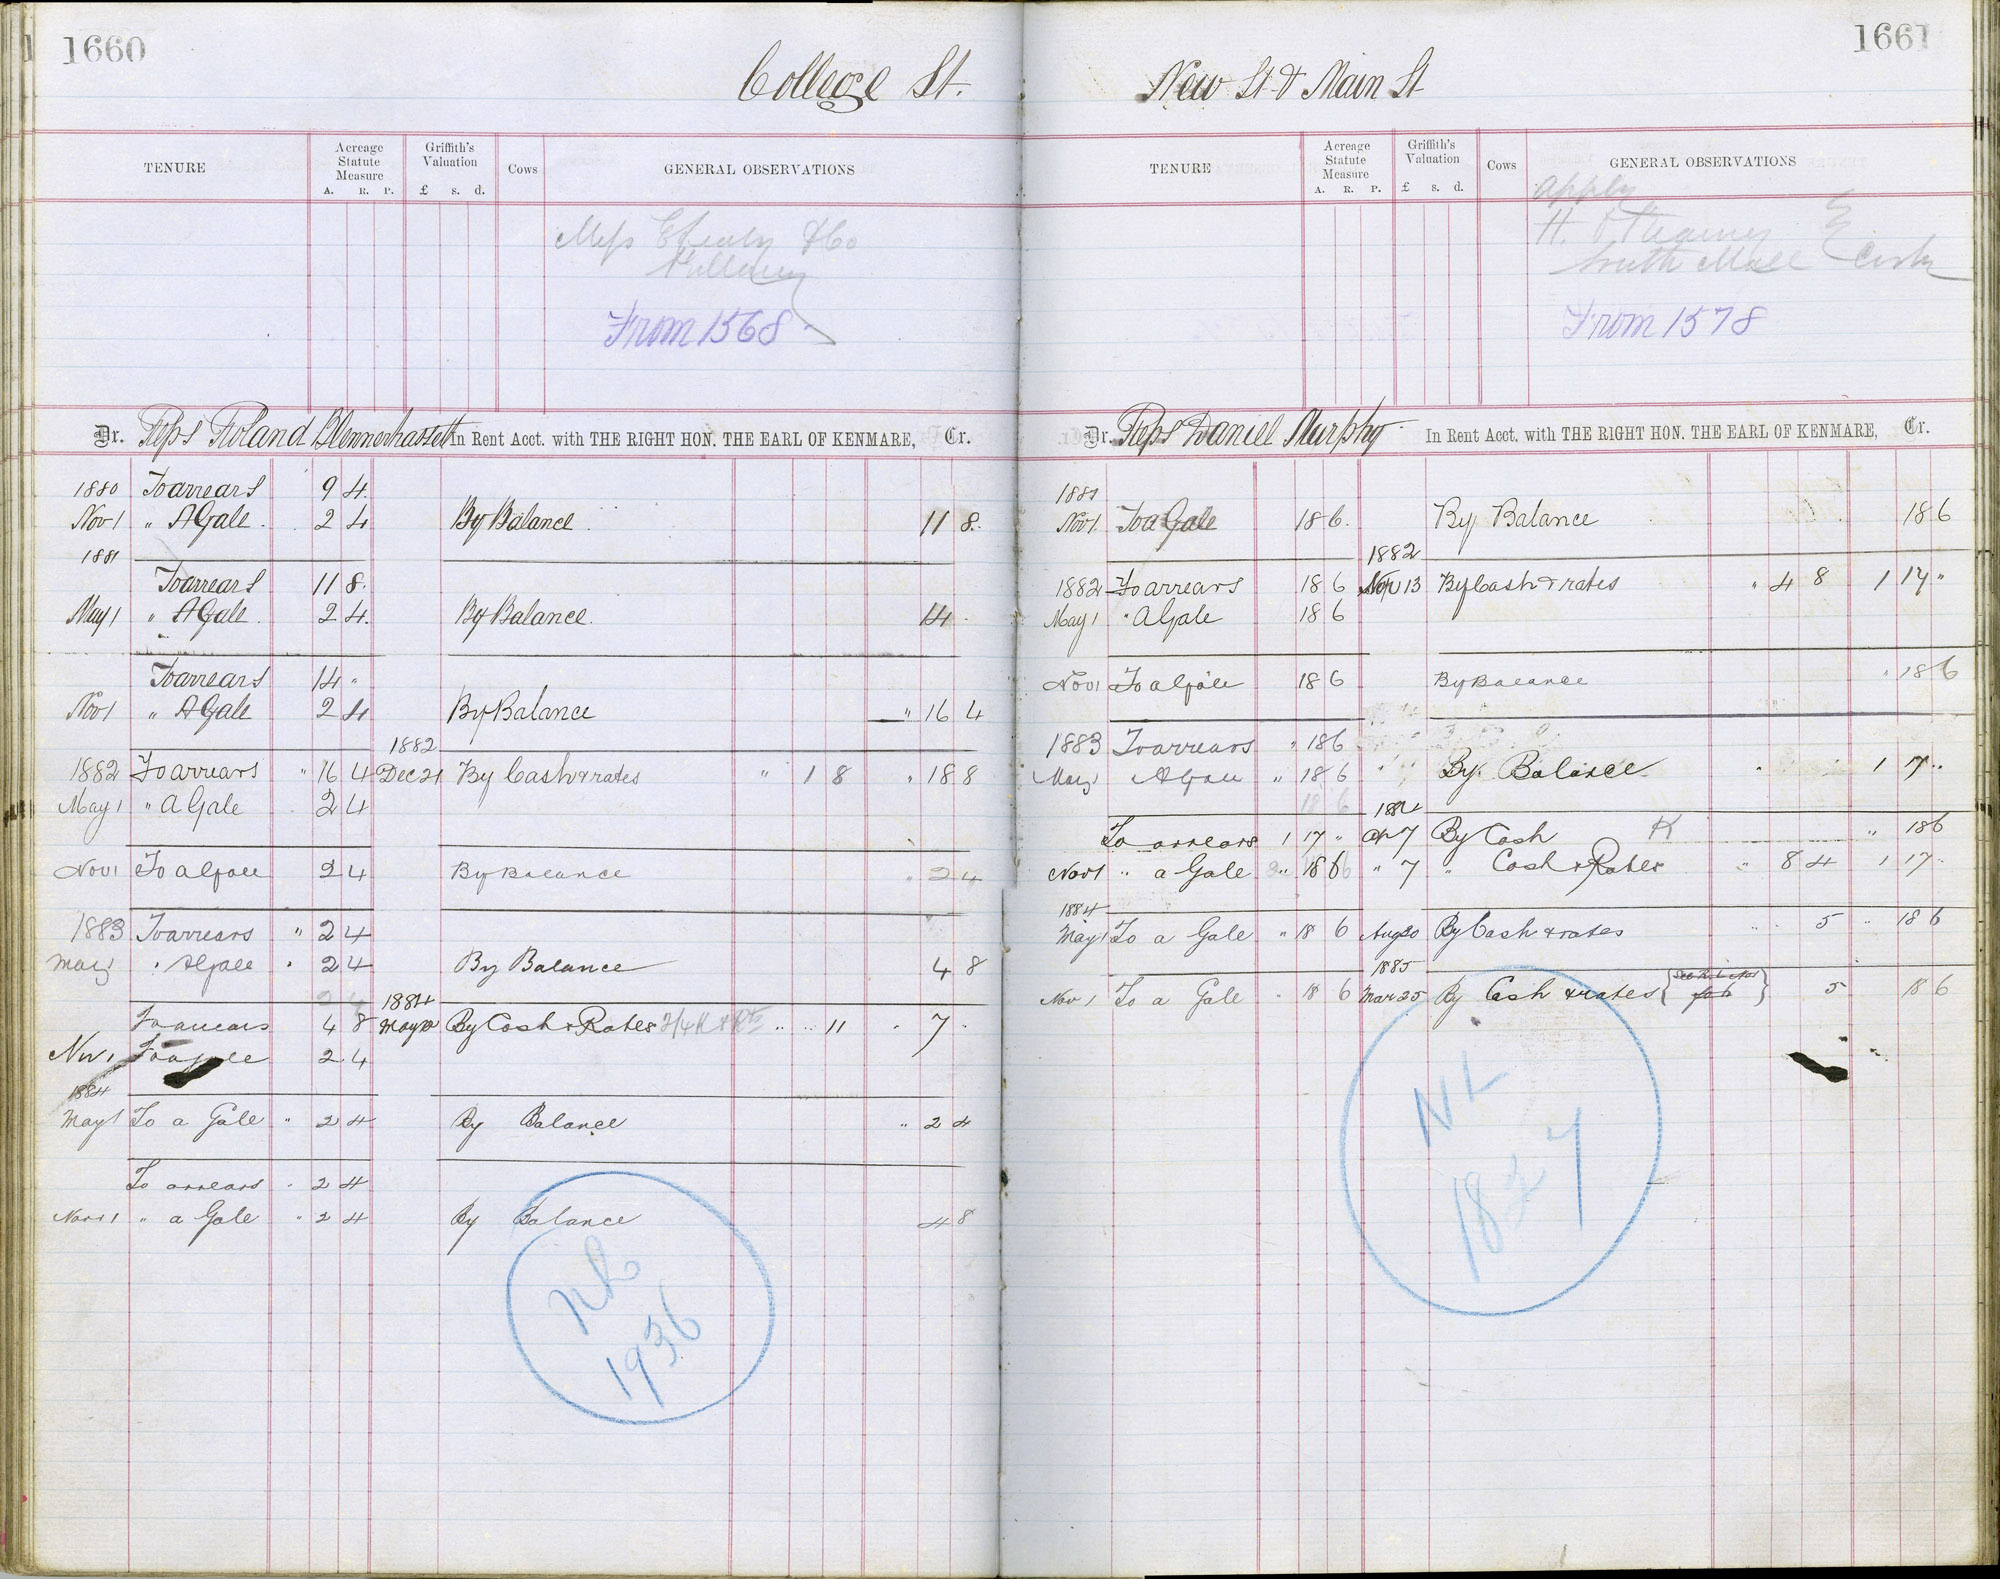 1660
College St.
TENURE
Acreage Statute Measure
A. R. P.
Griffith's Valuation
£ s. d.
Cows
GENERAL OBSERVATIONS
Killarney
From 1568
Dr. Reps Roland Blennerhassett In Rent Acct. with THE RIGHT HON. THE EARL OF KENMARE, Cr.
1880 To arrears 9 4
Nov 1 " A Gale 2 4 By Balance 11 8
1881
To arrears 11 8
May 1 " A Gale 2 4 By Balance 14
To arrears 14 "
Nov 1 " A Gale 2 4 By Balance " 16 4
1882
1882 To arrears " 16 4 Dec 21 By Cash & rates " 1 8 " 18 8
May 1 " A Gale 2 4
Nov 1 To a Gale 2 4 By Balance " 2 4
1883 To arrears " 2 4
May 1 " A Gale " 2 4 By Balance 4 8
1884
To arrears 4 8 May By Cash & Rates " " 11 " 7
Nov 1 To a Gale 2 4
1884
May 1 To a Gale " 2 4 By Balance " 2 4
To arrears " 2 4
Nov 1 " a Gale " 2 4 By Balance 4 8
NL
1936
1661
New St & Main St
TENURE
Acreage Statute Measure
A. R. P.
Griffith's Valuation
£ s. d.
Cows
GENERAL OBSERVATIONS
Apply
H.
South Mall Cork
From 1578
Dr. Reps Daniel Murphy In Rent Acct. with THE RIGHT HON. THE EARL OF KENMARE, Cr.
1881
Nov 1 To a Gale 18 6 By Balance 18 6
1882
1882 To arrears 18 6 Nov 13 By Cash & rates " 4 8 1 17 "
May 1 " A Gale 18 6
Nov 1 To a Gale 18 6 By Balance " 18 6
1883 To arrears " 18 6
May 1 A Gale " 18 6 By Balance 1 17 "
18 6
1884
To arrears 1 17 " Ap 7 By Cash K " 18 6
Nov 1 " a Gale " 18 6 " 7 " Cash & Rates " 8 4 1 17
1884
May 1 To a Gale " 18 6 Aug 20 By Cash & rates 5 " 18 6
1885
Nov 1 To a Gale " 18 6 Mar 25 By Cash & rates 5 18 6
NL
1827